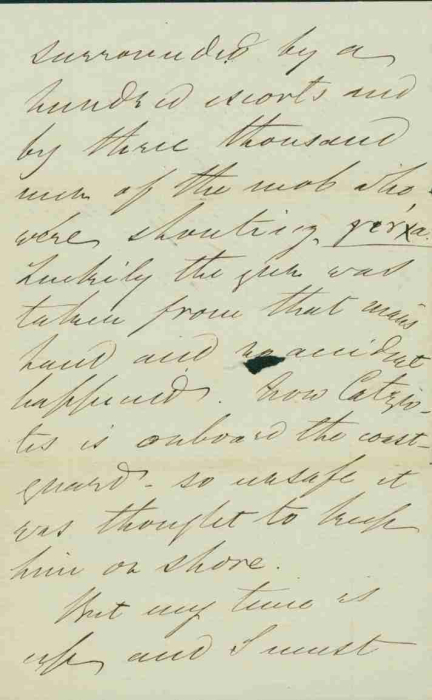 surrounded by a
hundred escorts and
by three thousand
men of the mob who
were shouting
Luckily the gun was
taken from that man's
hand and no accident
happened. Now Catzio-
tis is onboard the coast-
guard - so unsafe it
was thought to keep
him on shore.
But my time is
up and I must